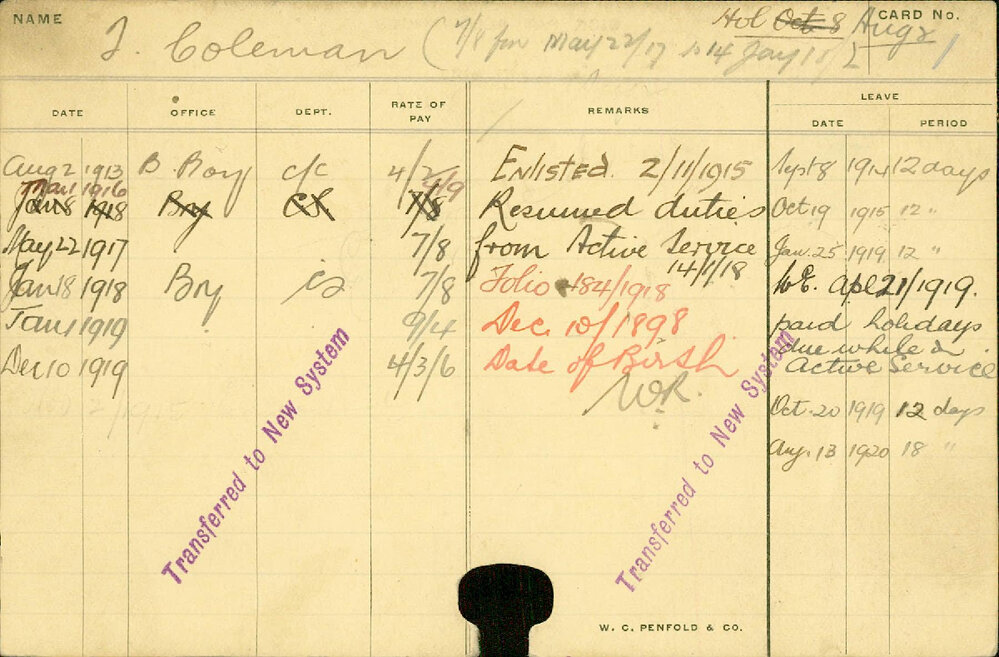 NAME
J. Coleman (7/8 from May 22/17 to 14 Jany 18)
Hol Oct 8 Aug 2
CARD No.
1
DATE OFFICE DEPT. RATE OF PAY REMARKS LEAVE
DATE PERIOD
Aug 2 1913 B. Boy c/c 4/2 Enlisted. 2/11/1915 Sept 8 1914 12 days
Jan 1 1916 4/9
Jan 18 1918 Bry 7/8 Resumed duties Oct 19 1915 12 "
May 22 1917 7/8 from Active Service Jan. 25 1919 12 "
14/1/18
Jan 18 1918 Bry 7/8 Folio 484/1918 W.E. Apl 21/1919.
Jan 1 1919 9/4 Dec. 10/1898 paid holidays
due while on
Dec 10 1919 4/3/6 Date of Birth Active Service
W.R.
Oct. 20 1919 12 days
Aug. 13 1920 18 "
Transferred to New System
Transferred to New System
W. C. PENFOLD & CO.